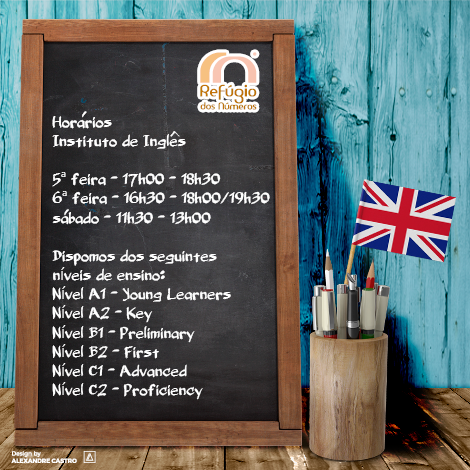 Refúgio
dos Números
Horários
Instituto de Inglês
5ª feira - 17h00 - 18h30
6ª feira - 16h30 - 18h00/19h30
sábado - 11h30 - 13h00
Dispomos dos seguintes
níveis de ensino:
Nível A1 - Young Learners
Nível A2 - Key
Nível B1 - Preliminary
Nível B2 - First
Nível C1 - Advanced
Nível C2 - Proficiency
Design by
ALEXANDRE CASTRO